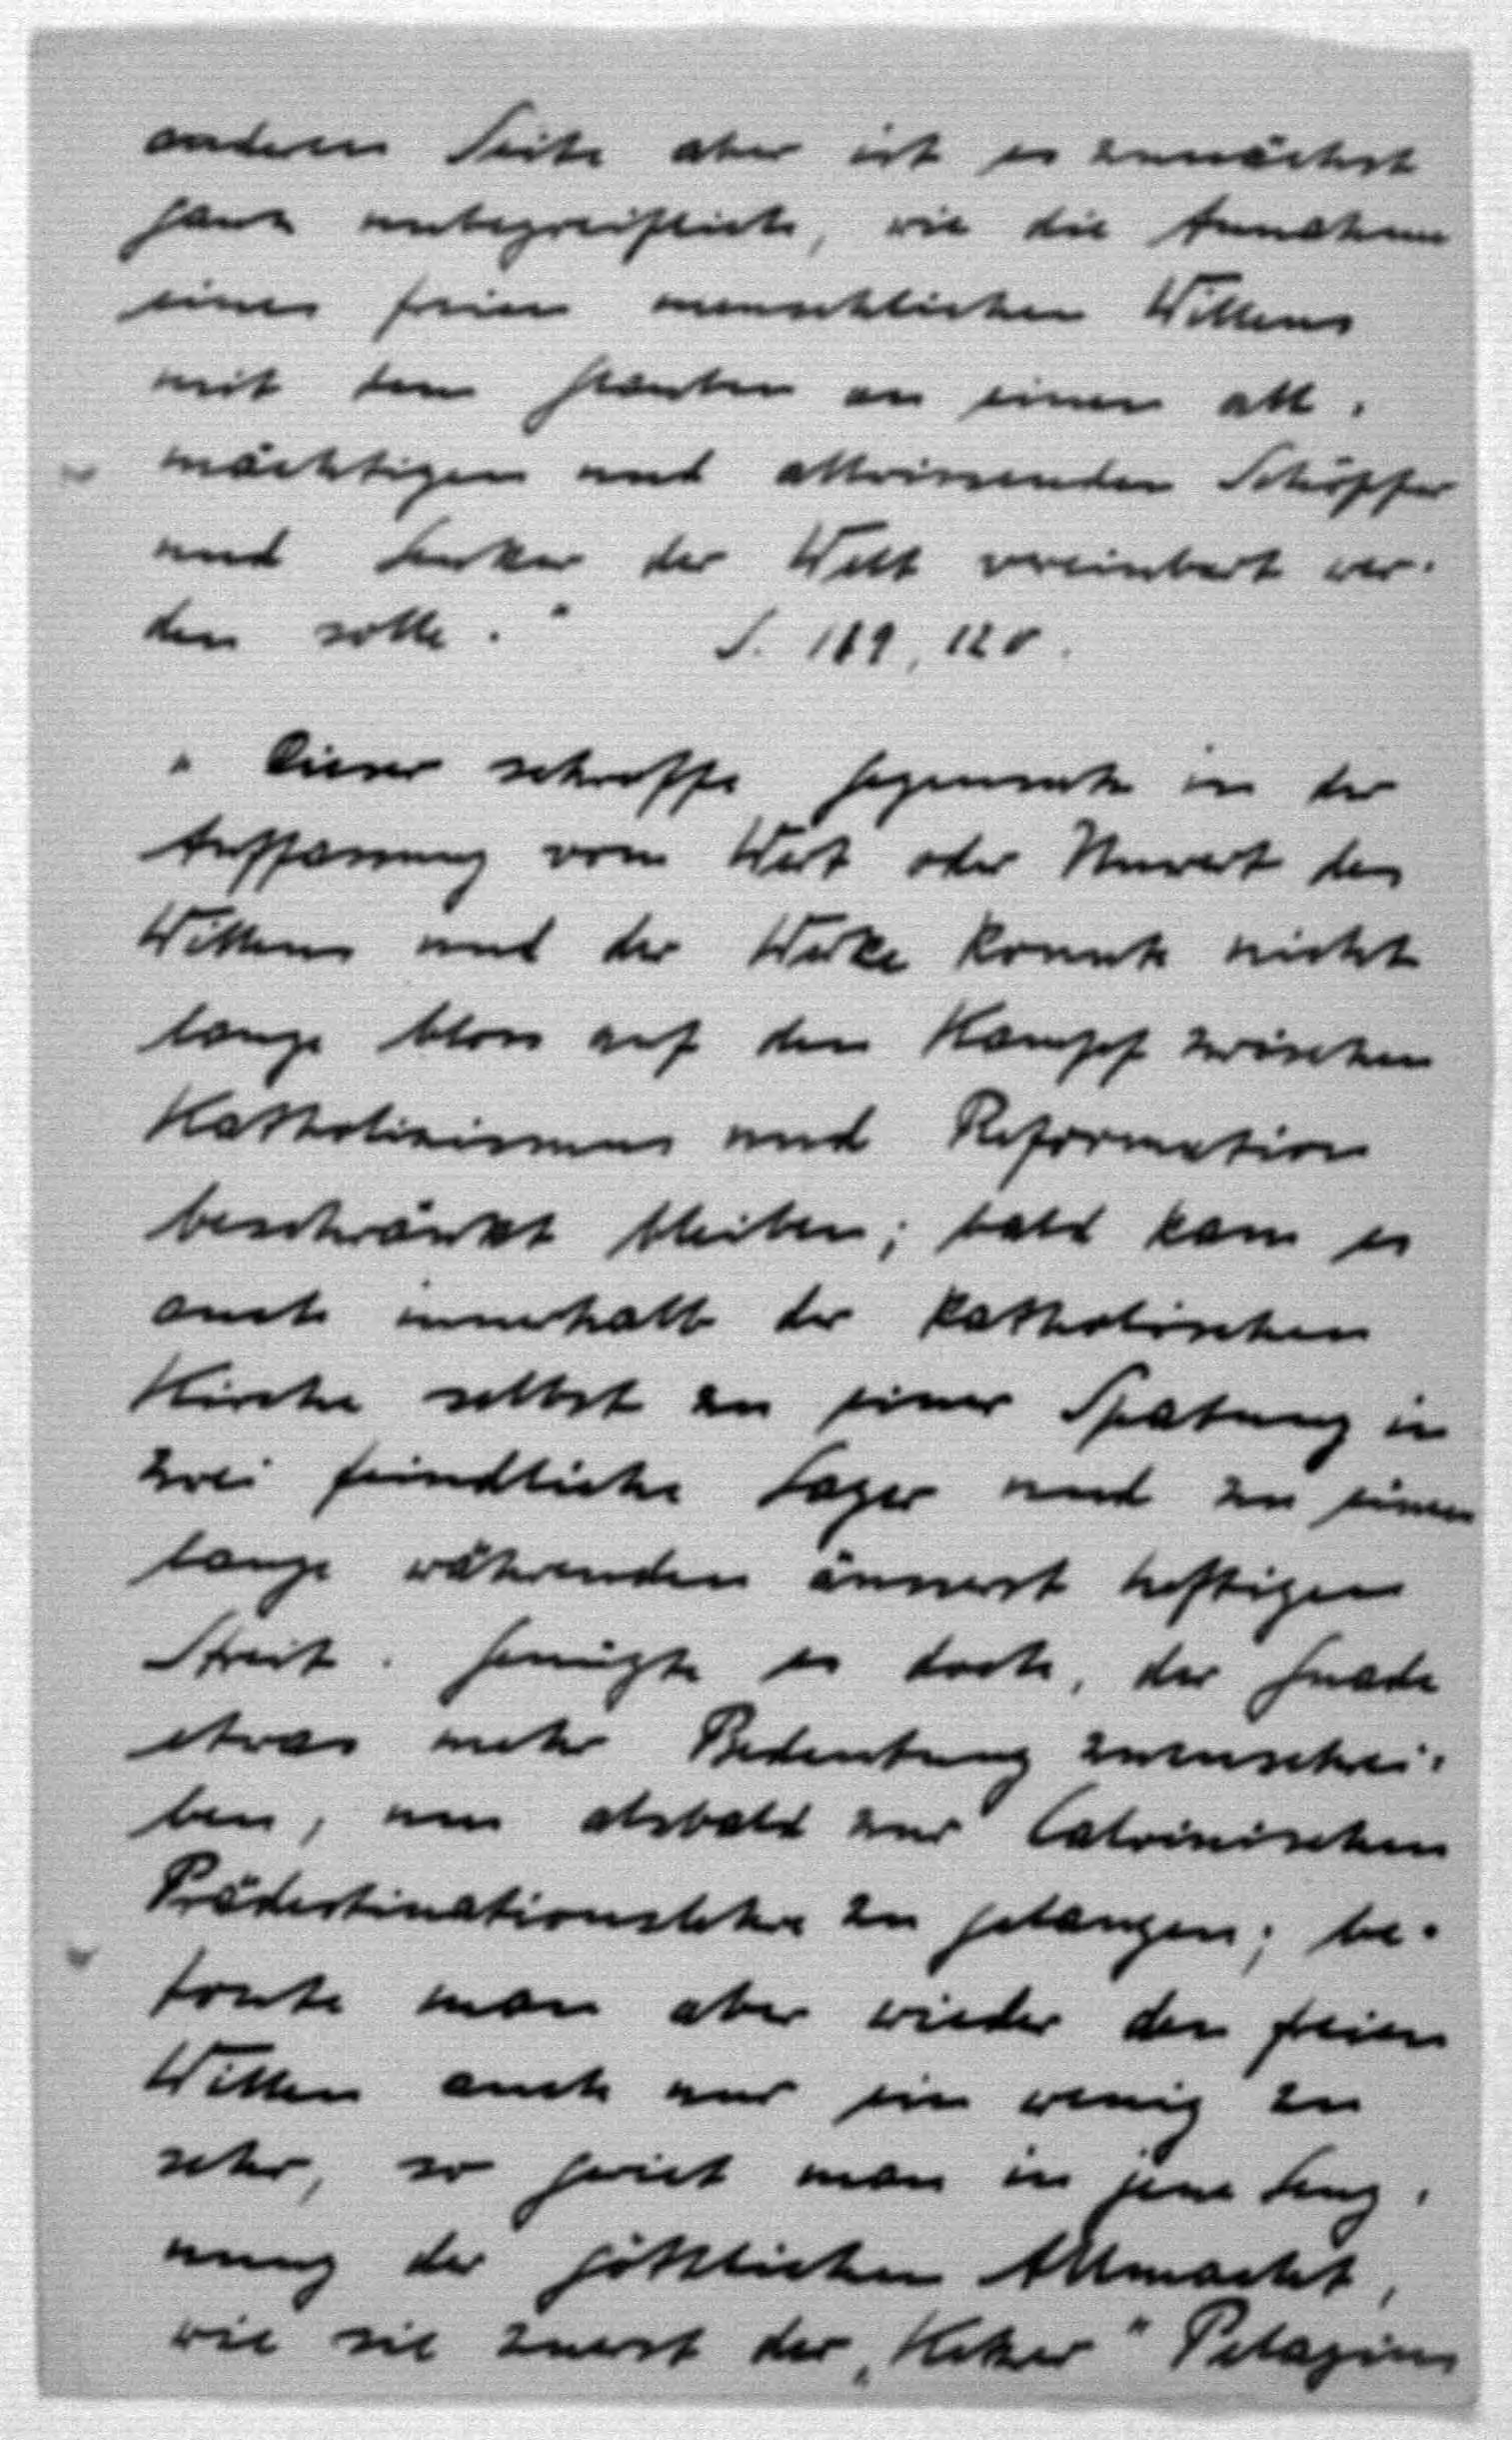 anderen Seite aber ist es zunächst
ganz unbegreiflich, wie die Annahme
eines freien menschlichen Willens
mit dem Glauben an einen all-
mächtigen und allwissenden Schöpfer
und Lenker der Welt vereinbart wer-
den solle." S. 119, 120.
" Dieser schroffe Gegensatz in der
Auffassung vom Wert oder Unwert des
Willens und der Werke konnte nicht
lange bloss auf den Kampf zwischen
Katholizismus und Reformation
beschränkt bleiben; bald kam es
auch innerhalb der katholischen
Kirche selbst zu einer Spaltung in
zwei feindliche Lager und zu einem
lange währenden äusserst heftigen
Streit. Genügte es doch, der Gnade
etwas mehr Bedeutung zuzuschrei-
ben, um alsbald zur Calvinischen
Prädestinationslehre zu gelangen; be-
tonte man aber wieder den freien
Willen auch nur ein wenig zu
sehr, so geriet man in jene Leug-
nung der göttlichen Allmacht,
wie sie zuerst der „Ketzer" Pelagius